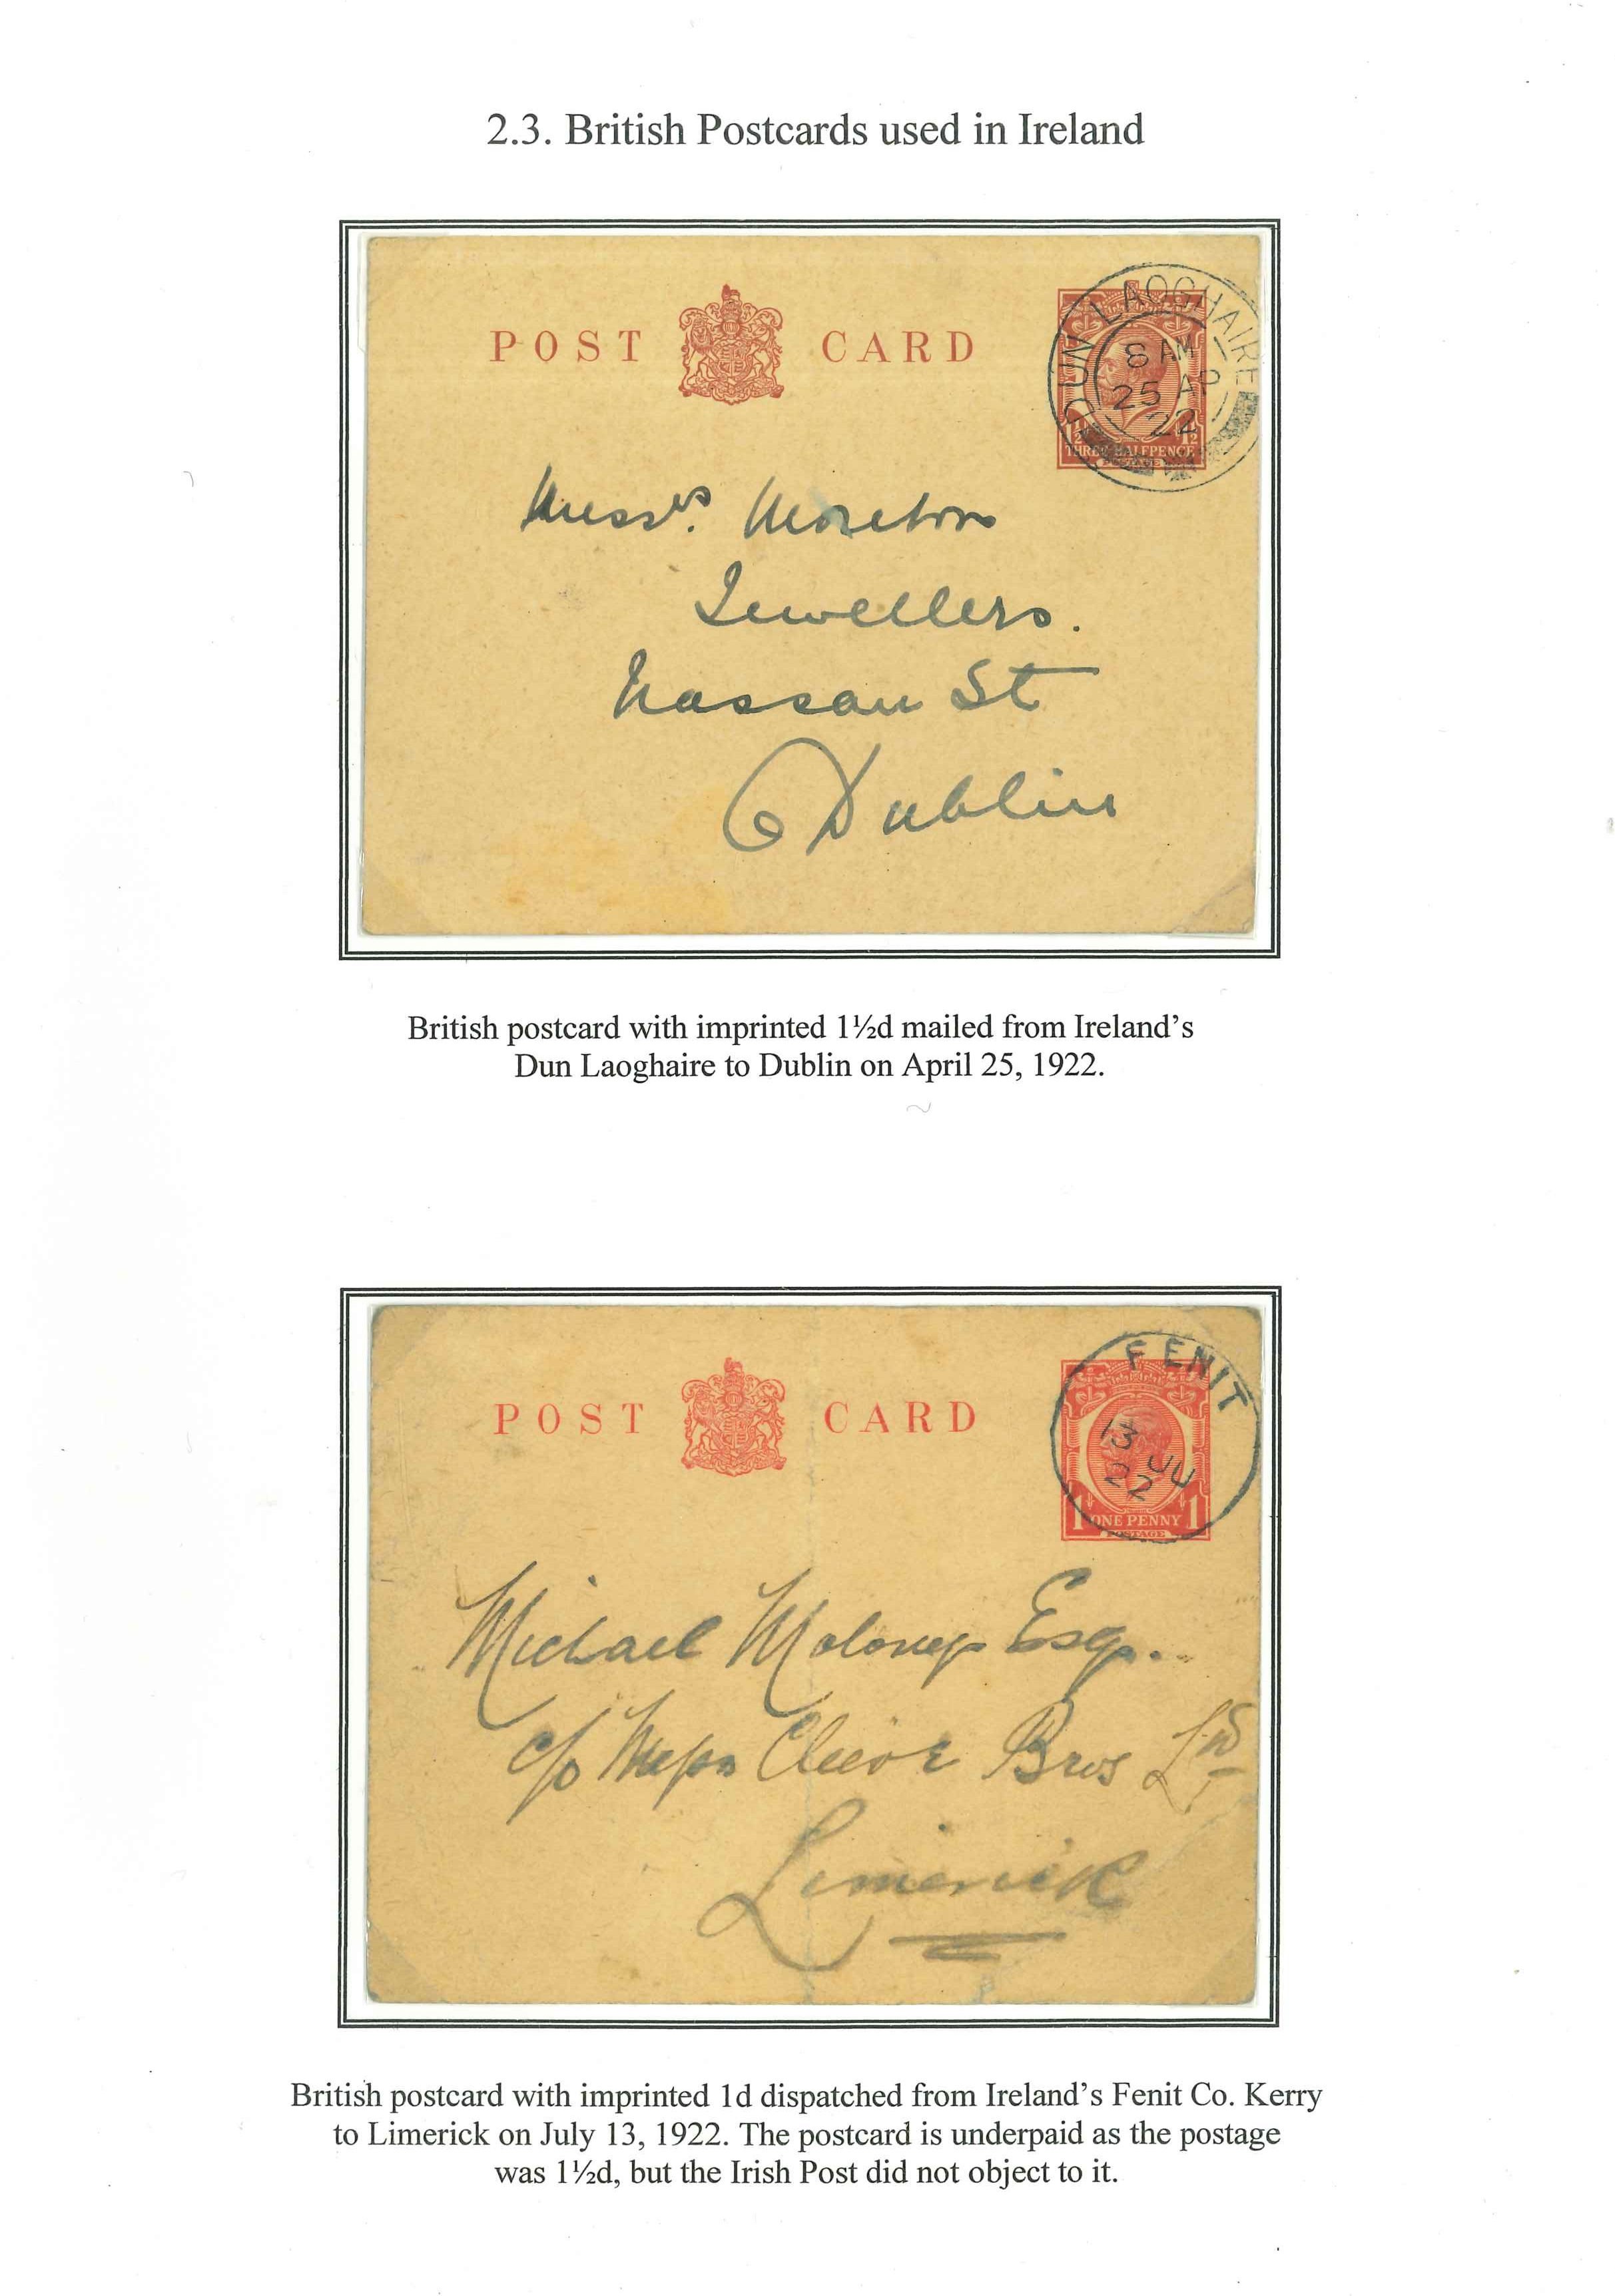 2.3. British Postcards used in Ireland
POST CARD
DUN LAOGHAIRE
8 AM
25 AP
22
1½ 1½
THREE HALFPENCE
Messrs. Moreton
Jewellers.
Nassau St
Dublin
British postcard with imprinted 1½d mailed from Ireland's
Dun Laoghaire to Dublin on April 25, 1922.
POST CARD
FENIT
13 JU
22
1 ONE PENNY 1
POSTAGE
Michael Moloney Esq.
c/o Messrs Cleeve Bros Ltd
Limerick
British postcard with imprinted 1d dispatched from Ireland's Fenit Co. Kerry
to Limerick on July 13, 1922. The postcard is underpaid as the postage
was 1½d, but the Irish Post did not object to it.